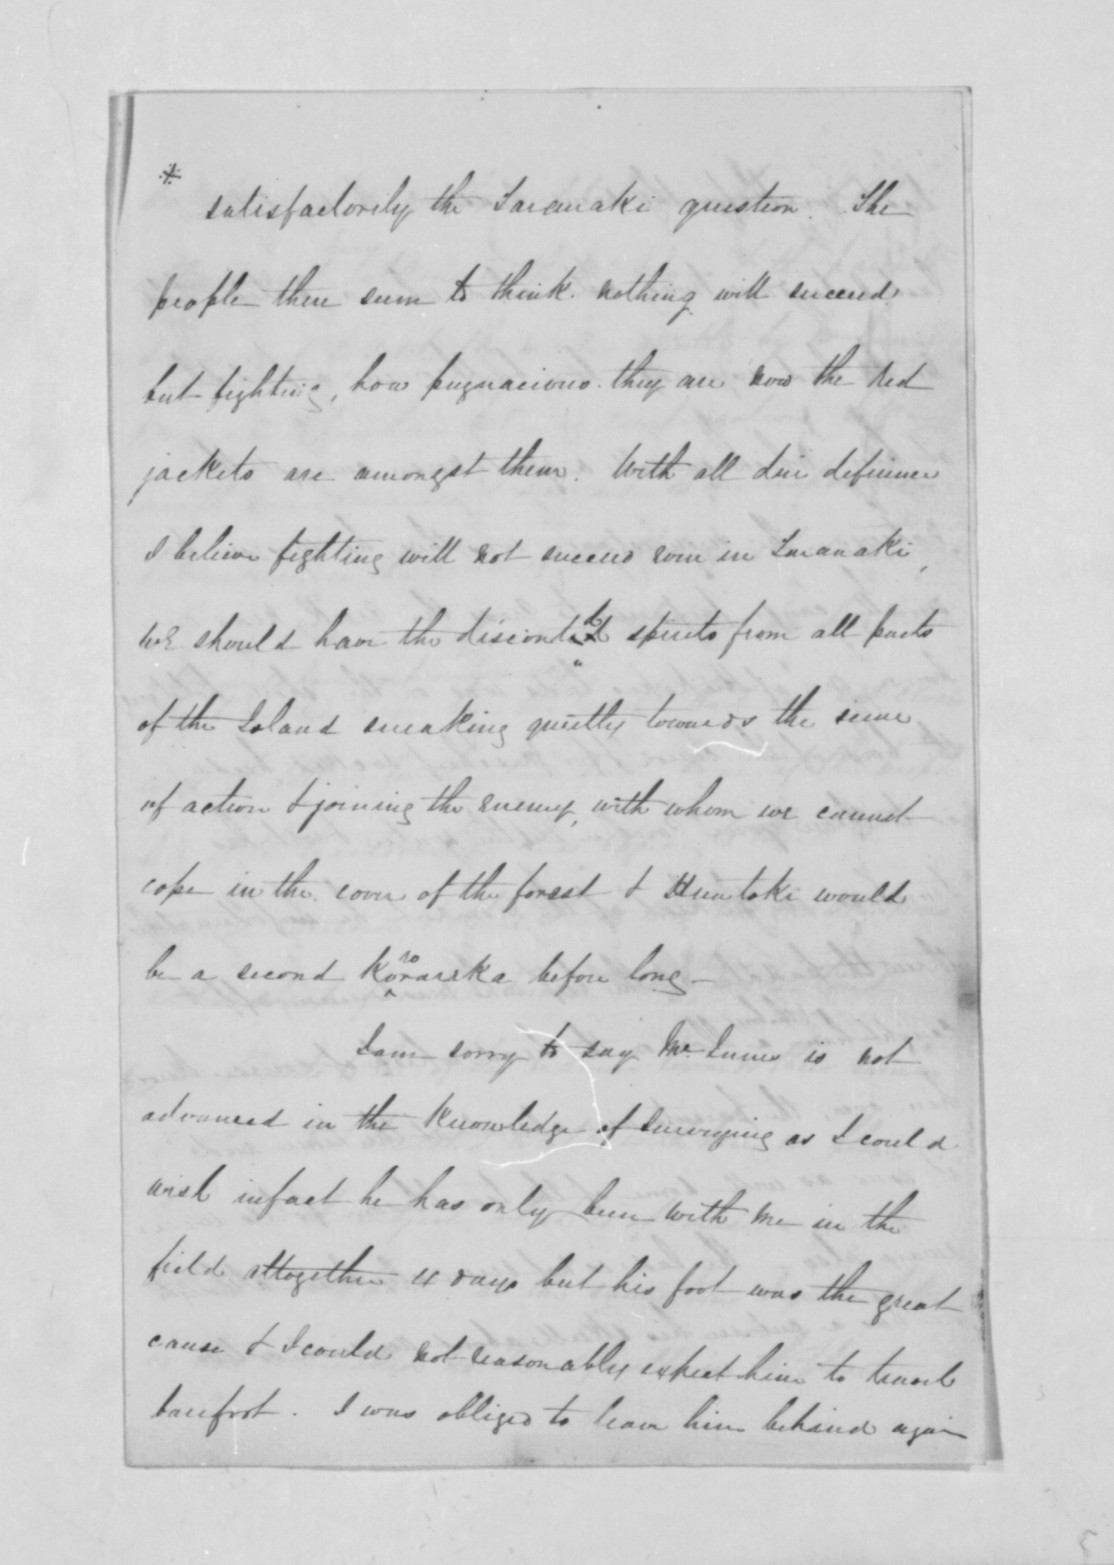 satisfactorily the Taranaki question. The
people there seem to think nothing will succeed
but fighting, how pugnacious they are now the red
jackets are amongst them. With all due defference
I believe fighting will not succeed even in Taranaki,
we should have the discontented spirits from all parts
of the Island sneaking quietly towards the scene
of action & joining the enemy, with whom we cannot
cope in the cover of the forest & would
be a second Kororareka before long –
I am sorry to say Mr. Innes is not
advanced in the knowledge of Surveying as I could
wish infact he has only been with me in the
field altogether 4 days but his foot was the great
cause & I could not reasonably expect him to travel
barefoot. I was obliged to leave him behind again